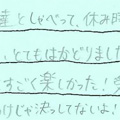 達としゃべって、休み時
、とてもはかどりました
すごく楽しかった!
けじゃ決ってないよ!